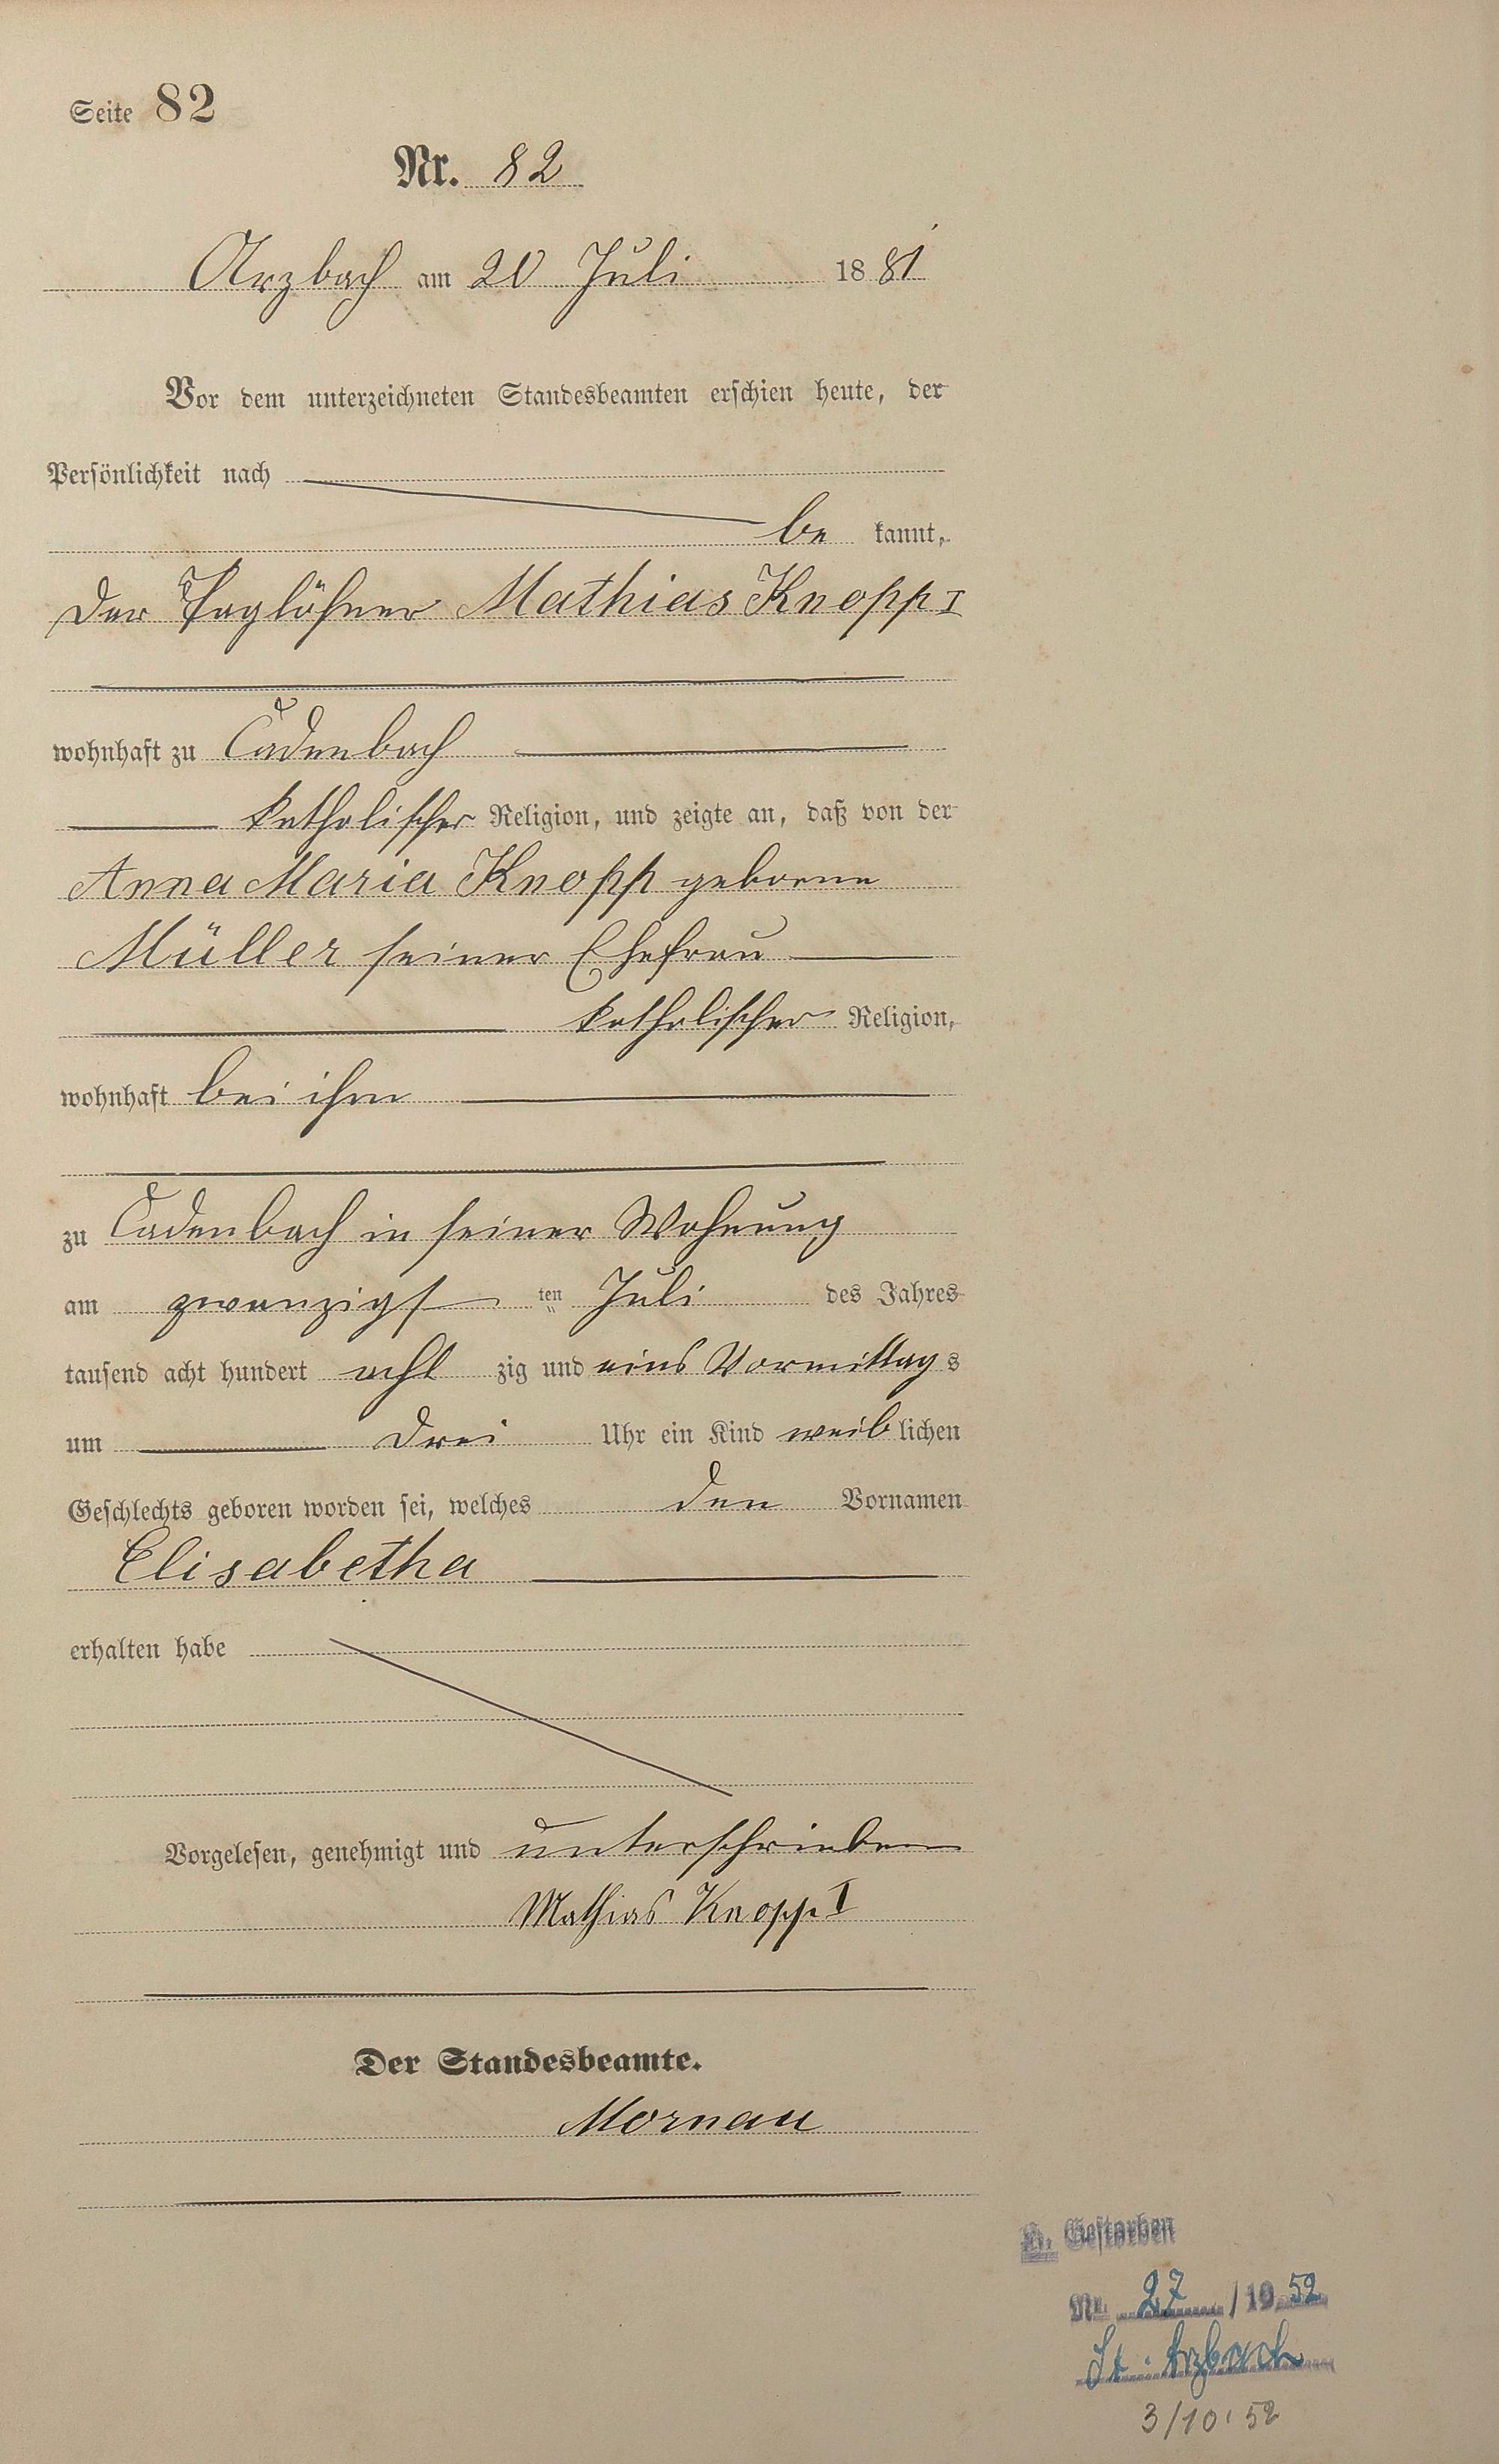 Seite 82
Nr. 82
Arzbach am 20 Juli 1881
Vor dem unterzeichneten Standesbeamten erschien heute, der
Persönlichkeit nach
be kannt,
der Taglöhner Mathias Knopp I
wohnhaft zu Cadenbach
katholischer Religion, und zeigte an, daß von der
Anna Maria Knopp geborene
Müller seiner Ehefrau
katholischer Religion,
wohnhaft bei ihm
zu Cadenbach in seiner Wohnung
am zwanzigst ten Juli des Jahres
tausend acht hundert acht zig und eins Vormittags
um drei Uhr ein Kind weiblichen
Geschlechts geboren worden sei, welches den Vornamen
Elisabetha
erhalten habe
Vorgelesen, genehmigt und unterschrieben
Mathias Knopp I
Der Standesbeamte.
Mornau
Gestorben
Nr. 27/1952
St. Arzbach
3/10.52